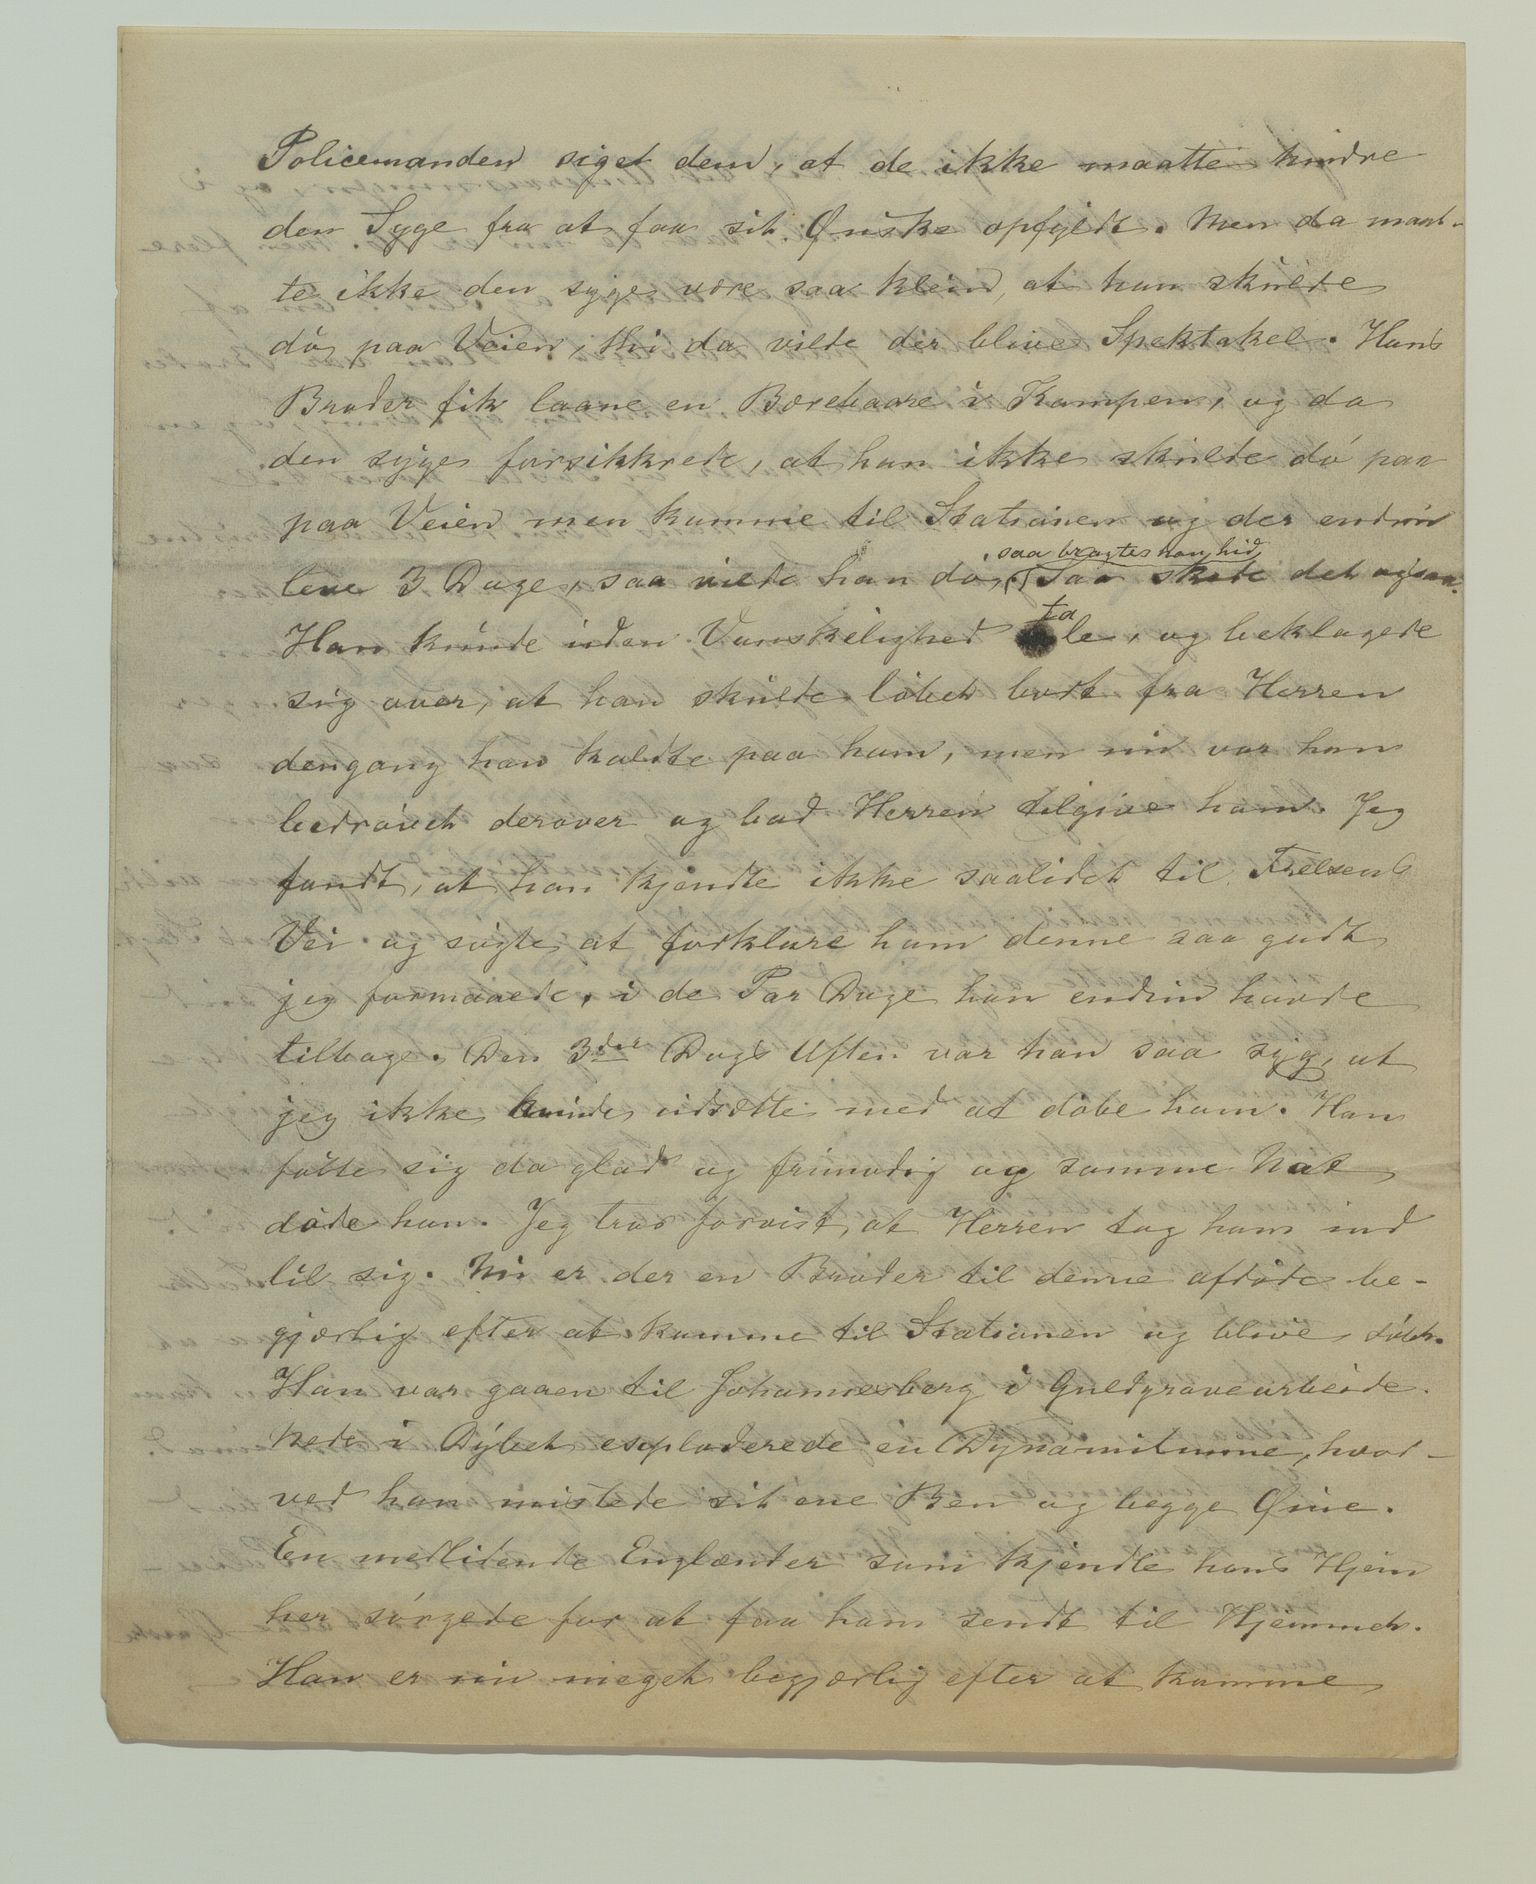 Policemanden siget dem, at de ikke maatte hindre
den Syge fra at faa sit Ønske opfyldt. Men da maat-
te ikke den syge være saa klein, at han skulde
dø paa Veien, thi da vilde der blive Spektakel. Hans
Broder fik laane en Bærebaare i Kampen, og da
den syge forsikkrede, at han ikke skulde dø paa
paa Veien men komme til Stationen og der endnu
leve 3 Dage, saa vilde han dø, saa bragtes han hid
(Saa skede det ogsaa.
Han kunde uden Vanskelighed tale, og beklagede
sig over, at han skulde løbet bort fra Herren
dengang han kaldte paa ham, men nu var han
bedrøvet derover og bad Herren tilgive ham. Jeg
fandt, at han kjendte ikke saalidet til Frelsens
Vei og søgte at forklare ham denne saa godt
jeg formaaede, i de Par Dage han endnu havde
tilbage. Den 3die Dags Aften var han saa syg, at
jeg ikke kunde udsætte med at døbe ham. Han
følte sig da glad og frimodig og samme Nat
døde han. Jeg tror forvist, at Herren tog ham ind
til sig. Nu er der en Broder til denne afdøde be-
gjærlig efter at komme til Stationen og blive døbt.
Han var gaaen til Johannesberg i Guldgravearbeide.
Nede i Dybet exploderede en Dynamitmine, hvor-
ved han mistede sit ene Ben og begge Øine.
En medlidende Englænder som kjendte hans Hjem
her sørgede for at faa ham sendt til Hjemmet.
Han er nu meget begjærlig efter at komme